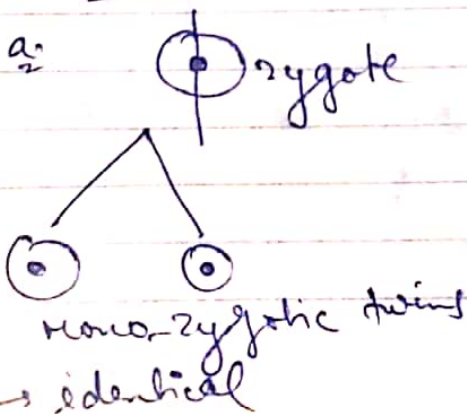 a.
zygote
mono-zygotic twins
→ identical